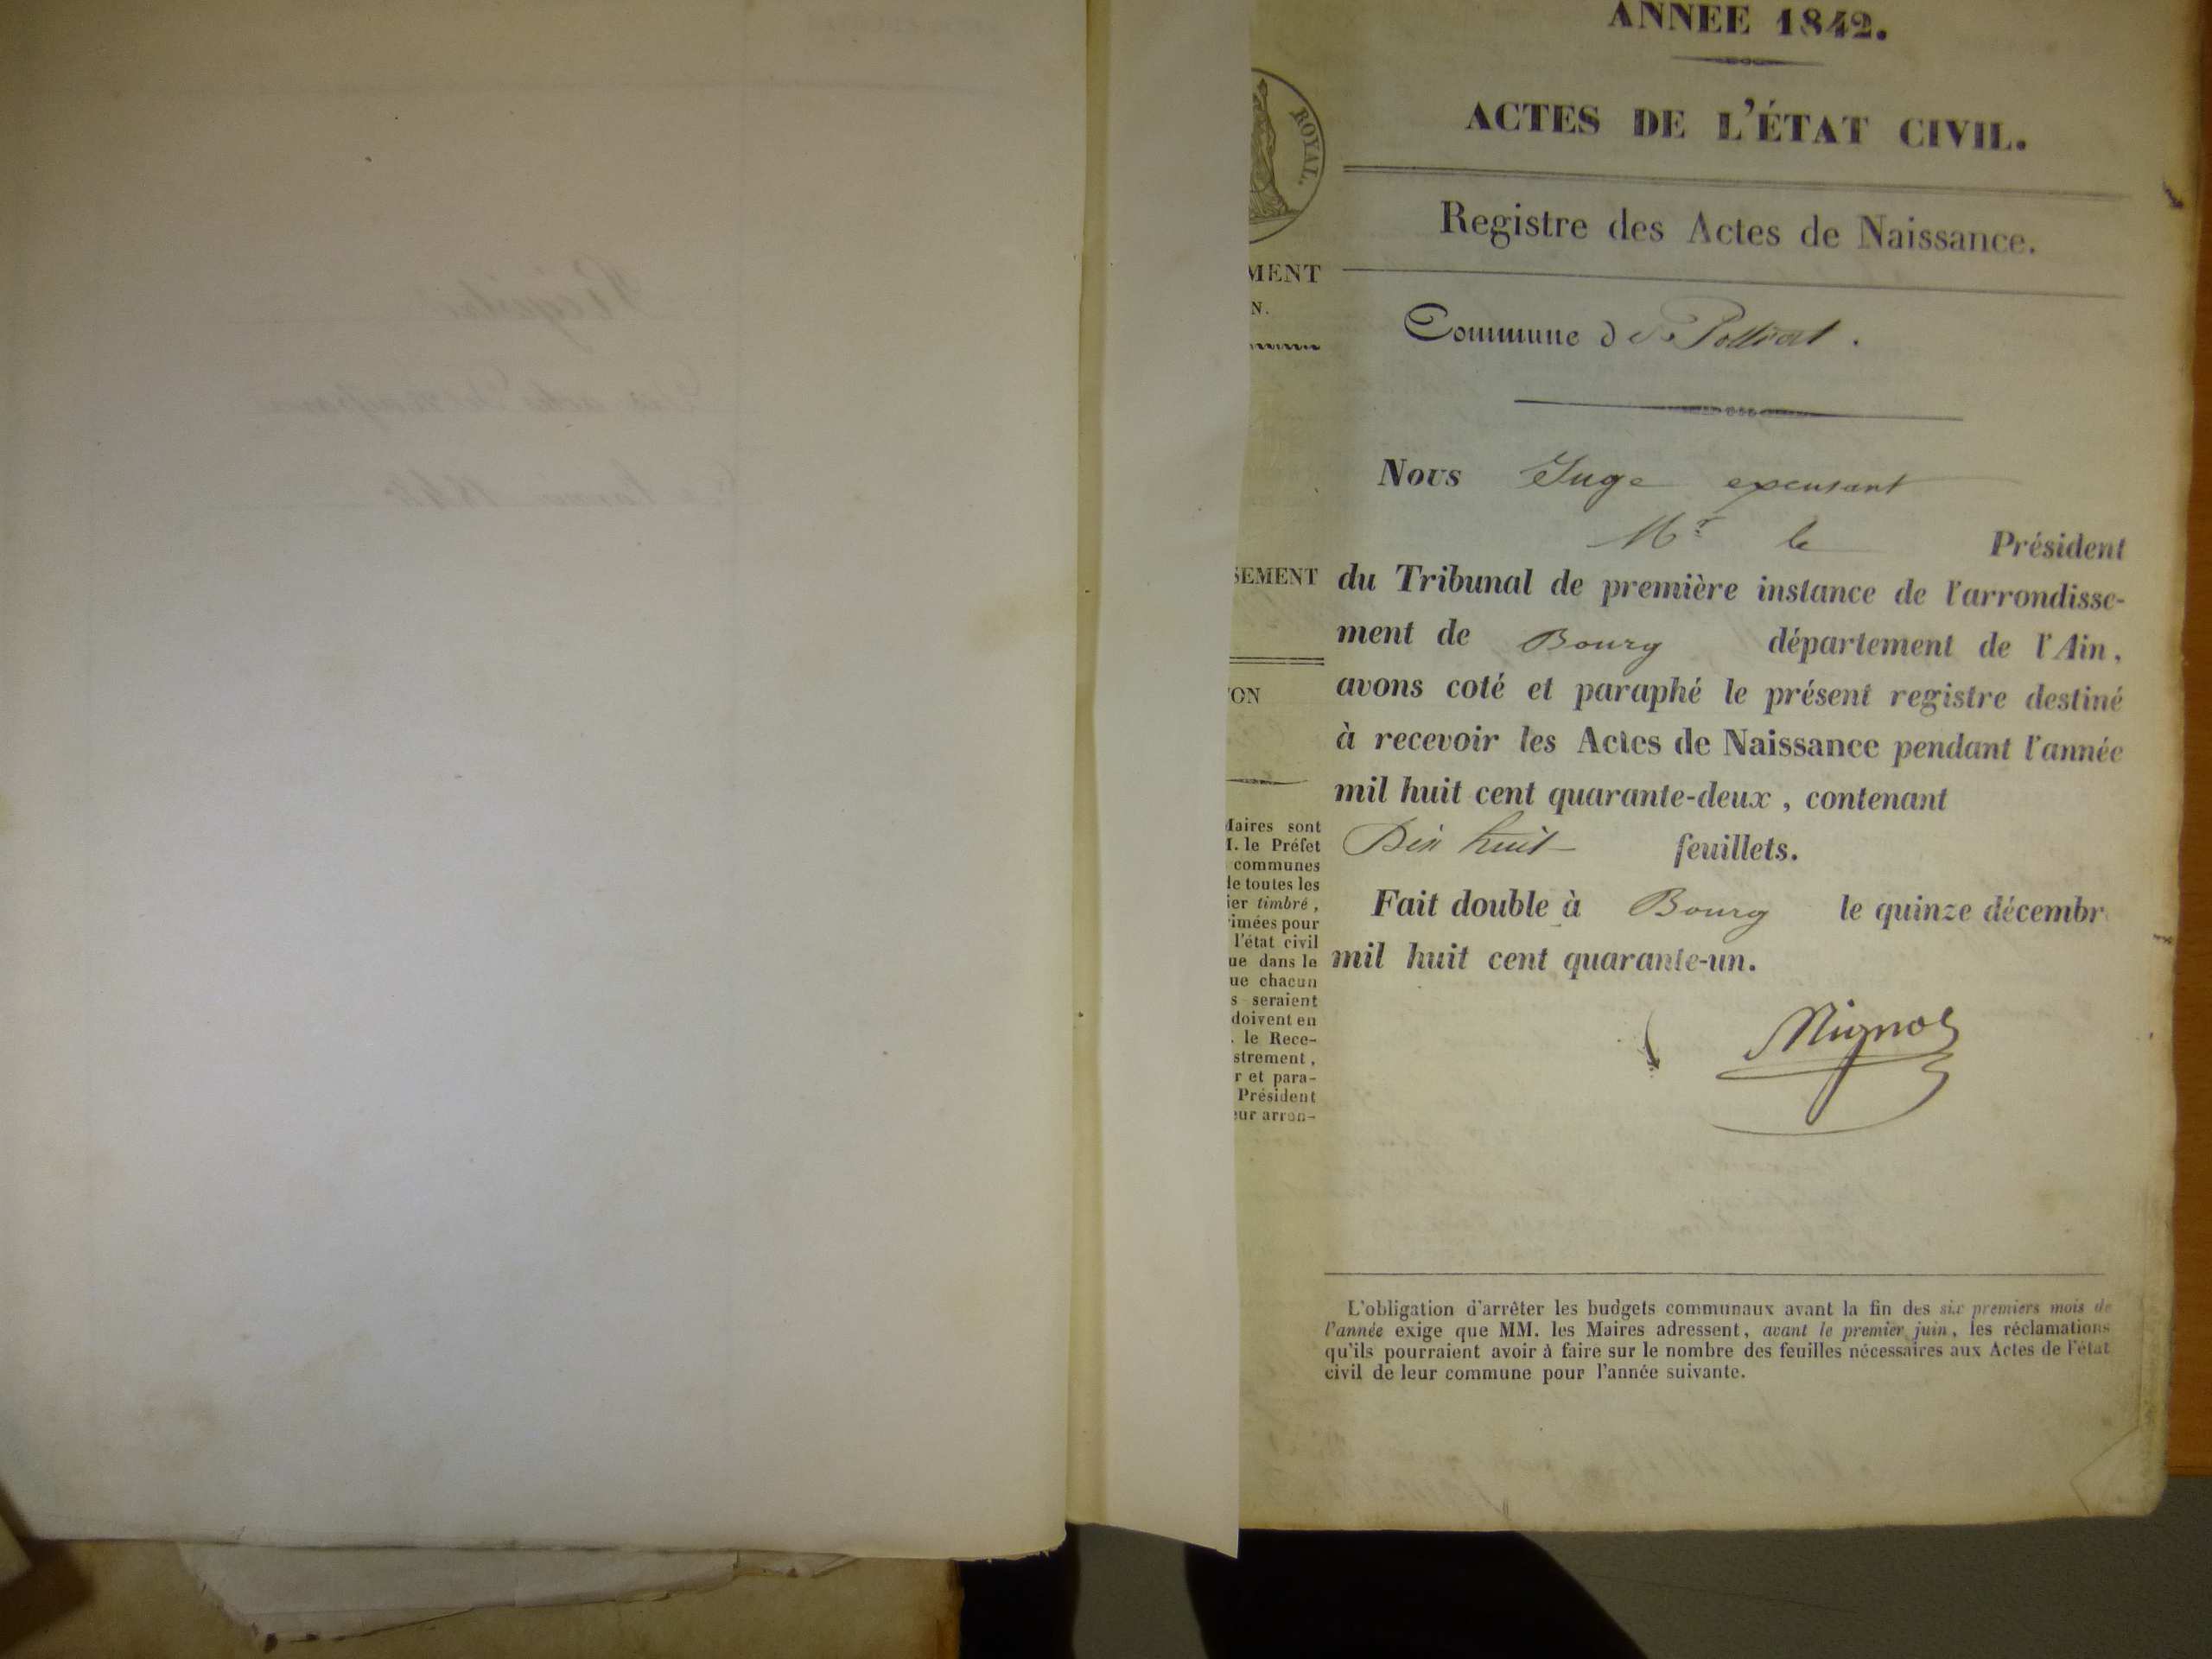 ANNÉE 1842.
ACTES DE L'ÉTAT CIVIL.
Registre des Actes de Naissance.
Commune de Polliat.
ROYAL.
MENT
N.
Nous Juge excusant
Mr le Président
SEMENT
du Tribunal de première instance de l'arrondisse-
ment de Bourg département de l'Ain,
ON
avons coté et paraphé le présent registre destiné
à recevoir les Actes de Naissance pendant l'année
mil huit cent quarante-deux, contenant
Dix huit feuillets.
Fait double à Bourg le quinze décembr
mil huit cent quarante-un.
Maires sont
M. le Préfet
communes
de toutes les
ier timbré,
rimées pour
l'état civil
ue dans le
ue chacun
s seraient
doivent en
. le Rece-
strement,
r et para-
Président
eur arron-
L'obligation d'arrêter les budgets communaux avant la fin des six premiers mois de
l'année exige que MM. les Maires adressent, avant le premier juin, les réclamations
qu'ils pourraient avoir à faire sur le nombre des feuilles nécessaires aux Actes de l'état
civil de leur commune pour l'année suivante.